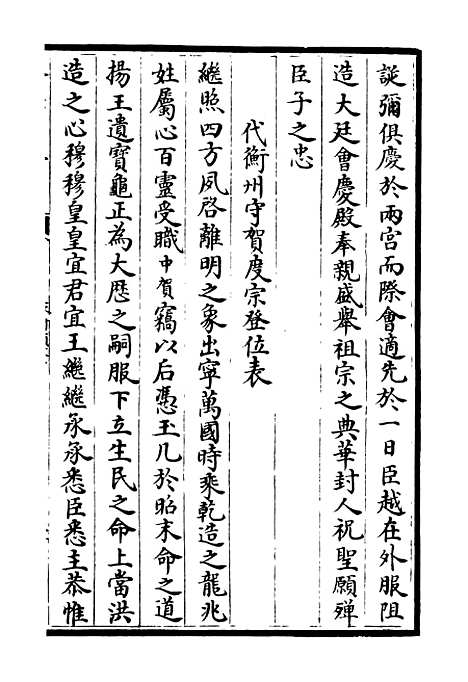 誕彌俱慶於兩宫而際會適先於一日臣越在外服阻
造大廷會慶殿奉親盛舉祖宗之典華封人祝聖願殫
臣子之忠
代衡州守賀度宗登位表
繼照四方夙啓離明之象出寧萬國時乘乾造之龍兆
姓屬心百靈受職中賀竊以后憑玉几於昭末命之道
揚王遺寶龜正為大歴之嗣服下立生民之命上當洪
造之心穆穆皇皇宜君宜王繼繼承承悉臣悉主恭惟